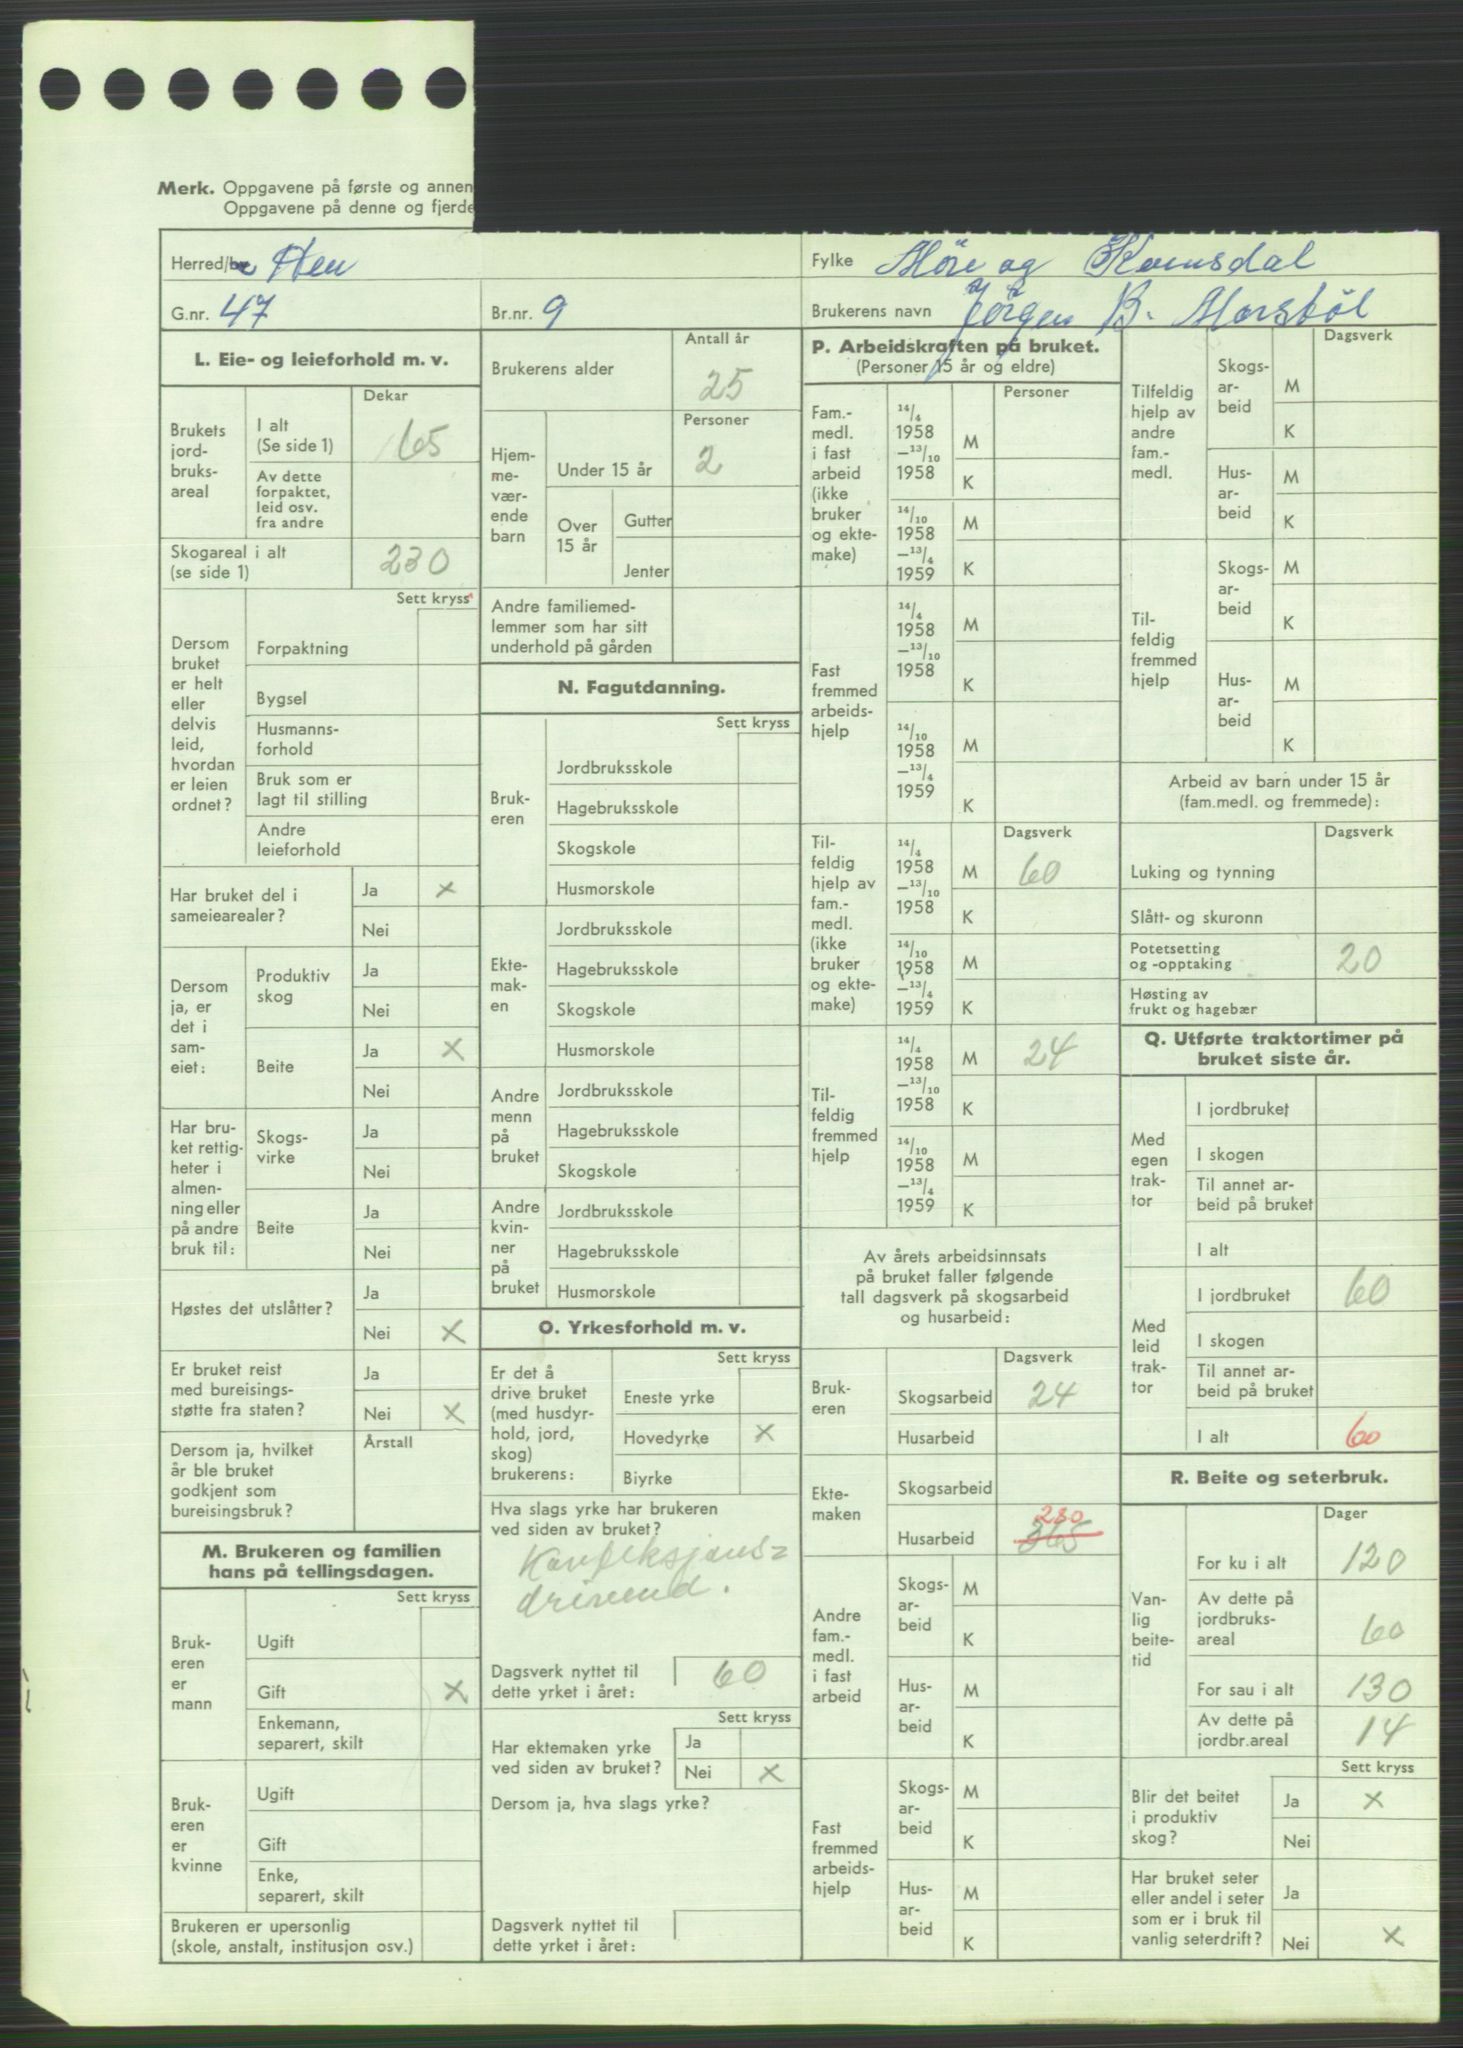 Merk. Oppgavene på første og annen
Oppgavene på denne og fjerde
Herred/by Hen
Fylke Møre og Romsdal
G.nr. 47
Br.nr. 9
Brukerens navn Jørgen B. Morstøl
L. Eie- og leieforhold m. v.
Dekar
Brukets jord-
bruks-
areal
I alt
(Se side 1)
65
Av dette
forpaktet,
leid osv.
fra andre
Skogareal i alt
(se side 1)
230
Sett kryss
Dersom
bruket
er helt
eller
delvis
leid,
hvordan
er leien
ordnet?
Forpaktning
Bygsel
Husmanns-
forhold
Bruk som er
lagt til stilling
Andre
leieforhold
Har bruket del i
sameiearealer?
Ja x
Nei
Dersom
ja, er
det i
sam-
eiet:
Produktiv
skog
Ja
Nei
Beite
Ja x
Nei
Har bru-
ket rettig-
heter i
almen-
ning eller
på andre
bruk til:
Skogs-
virke
Ja
Nei
Beite
Ja
Nei
Høstes det utslåtter?
Ja
Nei x
Er bruket reist
med bureisings-
støtte fra staten?
Ja
Nei x
Dersom ja, hvilket
år ble bruket
godkjent som
bureisingsbruk?
Årstall
M. Brukeren og familien
hans på tellingsdagen.
Sett kryss
Bruk-
eren
er
mann
Ugift
Gift x
Enkemann,
separert, skilt
Bruk-
eren
er
kvinne
Ugift
Gift
Enke,
separert, skilt
Brukeren er upersonlig
(skole, anstalt, institusjon osv.)
Antall år
Brukerens alder 25
Personer
Hjem-
me-
vær-
ende
barn
Under 15 år 2
Over
15 år
Gutter
Jenter
Andre familiemed-
lemmer som har sitt
underhold på gården
N. Fagutdanning.
Sett kryss
Bruk-
eren
Jordbruksskole
Hagebruksskole
Skogskole
Husmorskole
Ekte-
mak-
en
Jordbruksskole
Hagebruksskole
Skogskole
Husmorskole
Andre
menn
på
bruket
Jordbruksskole
Hagebruksskole
Skogskole
Andre
kvin-
ner
på
bruket
Jordbruksskole
Hagebruksskole
Husmorskole
O. Yrkesforhold m. v.
Sett kryss
Er det å
drive bruket
(med husdyr-
hold, jord,
skog)
brukerens:
Eneste yrke
Hovedyrke x
Biyrke
Hva slags yrke har brukeren
ved siden av bruket?
Konfeksjons=
drivend.
Dagsverk nyttet til
dette yrket i året: 60
Sett kryss
Har ektemaken yrke
ved siden av bruket?
Ja
Nei x
Dersom ja, hva slags yrke?
Dagsverk nyttet til
dette yrket i året:
P. Arbeidskraften på bruket.
(Personer 15 år og eldre)
Personer
Fam.-
medl.
i fast
arbeid
(ikke
bruker
og ekte-
make)
14/4
1958
—13/10
1958
M
K
14/10
1958
—13/4
1959
M
K
Fast
fremmed
arbeids-
hjelp
14/4
1958
—13/10
1958
M
K
14/10
1958
—13/4
1959
M
K
Dagsverk
Til-
feldig
hjelp av
fam.-
medl.
(ikke
bruker
og ekte-
make)
14/4
1958
—13/10
1958
M 60
K
14/10
1958
—13/4
1959
M
K
Til-
feldig
fremmed
hjelp
14/4
1958
—13/10
1958
M 24
K
14/10
1958
—13/4
1959
M
K
Av årets arbeidsinnsats
på bruket faller følgende
tall dagsverk på skogsarbeid
og husarbeid:
Dagsverk
Bruk-
eren
Skogsarbeid 24
Husarbeid
Ekte-
maken
Skogsarbeid
Husarbeid 365 230
Andre
fam.-
medl.
i fast
arbeid
Skogs-
ar-
beid
M
K
Hus-
ar-
beid
M
K
Fast
fremmed
arbeids-
hjelp
Skogs-
ar-
beid
M
K
Hus-
ar-
beid
M
K
Dagsverk
Tilfeldig
hjelp av
andre
fam.-
medl.
Skogs-
ar-
beid
M
K
Hus-
ar-
beid
M
K
Til-
feldig
fremmed
hjelp
Skogs-
ar-
beid
M
K
Hus-
ar-
beid
M
K
Arbeid av barn under 15 år
(fam.medl. og fremmede):
Dagsverk
Luking og tynning
Slått- og skuronn
Potetsetting
og -opptaking 20
Høsting av
frukt og hagebær
Q. Utførte traktortimer på
bruket siste år.
Med
egen
trak-
tor
I jordbruket
I skogen
Til annet ar-
beid på bruket
I alt
Med
leid
trak-
tor
I jordbruket 60
I skogen
Til annet ar-
beid på bruket
I alt 60
R. Beite og seterbruk.
Dager
Van-
lig
beite-
tid
For ku i alt 120
Av dette på
jordbruks-
areal 60
For sau i alt 130
Av dette på
jordbr.areal 14
Sett kryss
Blir det beitet
i produktiv
skog?
Ja x
Nei
Har bruket seter
eller andel i seter
som er i bruk til
vanlig seterdrift?
Ja
Nei x